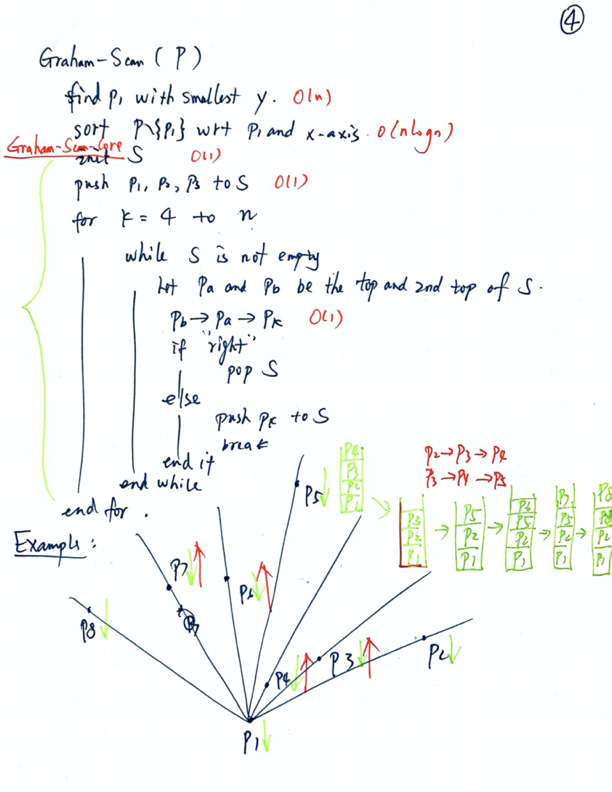 ④
Graham-Scan (P)
find P1 with smallest y. O(n)
sort P\{P1} wrt P1 and x-axis. O(nlogn)
Graham-Scan-Core
init S O(1)
push P1, P2, P3 to S O(1)
for k = 4 to n
while S is not empty
Let Pa and Pb be the top and 2nd top of S.
Pb → Pa → Pk O(1)
if "right"
pop S
else
push Pk to S
break
end if
end while
end for.
P2 → P3 → P4
Example:
P5
P4
P3
P2
P1
P3
P2
P1
P5
P2
P1
P5
P2
P1
P5
P2
P1
P8
P1
P7
P6
P8
P4
P3
P2
P1